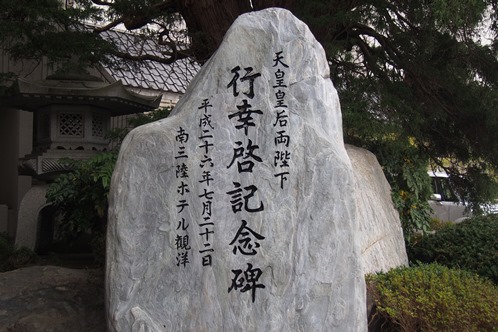 天皇皇后両陛下
行幸啓記念碑
平成二十六年七月二十二日
南三陸ホテル観洋